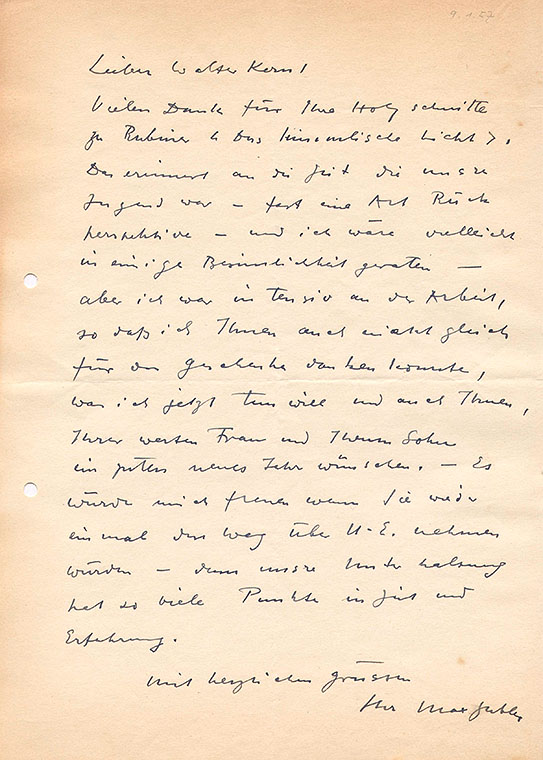 9.1.57
Lieber Walter Kern!
Vielen Dank für Ihre Holzschnitte
zu Rubiner < Das himmlische Licht >.
Das erinnert an die Zeit die unsre
Jugend war – fast eine Art Rück
perspektive – und ich wäre vielleicht
in einige Besinnlichkeit geraten —
aber ich war intensiv an der Arbeit,
so daß ich Ihnen auch nicht gleich
für das Geschenke danken konnte,
was ich jetzt tun will und auch Ihnen,
Ihrer werten Frau und Ihrem Sohn
ein gutes neues Jahr wünschen. – Es
würde mich freuen wenn Sie wieder
einmal den Weg über U-E. nehmen
würden – denn unsre Unterhaltung
hat so viele Punkte in Zeit und
Erfahrung.
Mit herzlichen Grüssen
Ihr Max Gubler